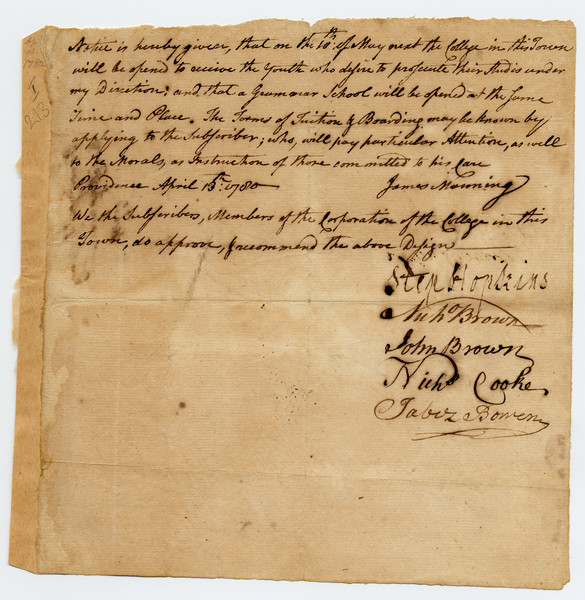 Notice is hereby given, that on the 10th. of May next the College in this Town
will be opened to receive the Youth who desire to prosecute their Studis under
my Direction: and that a Grammar School will be opened at the same
Time and Place. The Terms of Tuition & Boarding may be known by
applying to the Subscriber; who, will pay particular Attention, as well
to the Morals, as Instruction of those committed to his Care
Providence April 15th. 1780 James Manning
We the Subscribers, Members of the Corporation of the College in this
Town, do approve, & recommend the above Design
Step Hopkins
Nichs Brown
John Brown
Nichs Cooke
Jabez Bowen